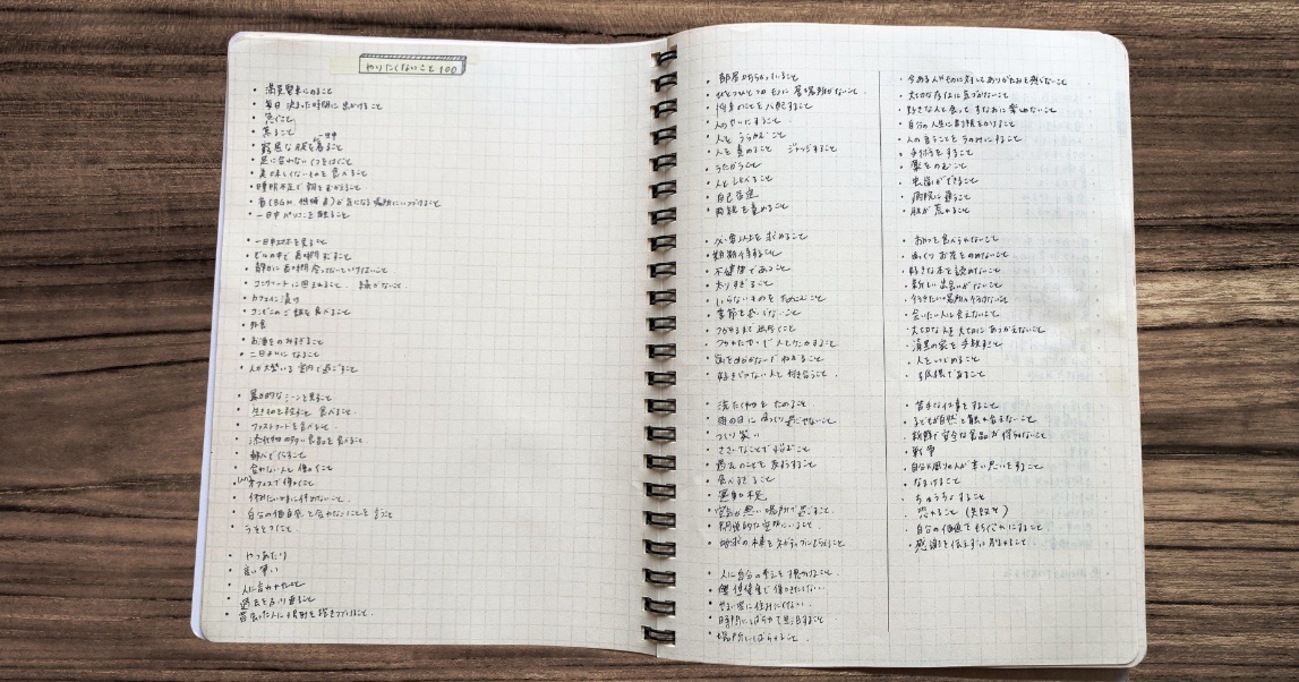 やりたくないこと100
・満員電車にのること
・毎日決まった時間に出かけること
・急ぐこと
・焦ること
・窮屈な服を一日中着ること
・足に合わないくつをはくこと
・美味しくないものを食べること
・睡眠不足で朝をむかえること
・音(BGM、機械音)が気になる場所にいつづけること
・一日中パソコンを触ること
・一日中スマホを見ること
・ビルの中で長時間すごすこと
・静かに長時間座ってないといけないこと
・コンクリートに囲まれること。緑がないこと。
・カフェイン漬け
・コンビニのご飯を食べること
・外食
・お酒をのみすぎること
・二日よいになること
・人が大勢いる室内で過ごすこと
・暴力的なシーンを見ること
・生きものを殺すこと 食べること。
・ファストフードを食べること。
・添加物の多い食品を食べること。
・合わない人と働くこと
・オフィスで働くこと
・休みたいときに休めないこと。
・自分の価値観と合わないことを言うこと
・うそをつくこと。
・やつあたり
・言い争い
・過去をふり返ること
・部屋がちらかっていること
・ひとつひとつのモノに居場所がない。
・将来のことを心配すること
・人とうらむこと
・人を責めること ジャッジすること
・うたがうこと
・人とくらべること
・自己否定
・両親を責めること
・必要以上を求めること
・期待すること
・不健康であること
・太りすぎること
・いらないものをためこむこと
・季節を感じないこと
・つかれるまで出歩くこと
・好きじゃない人と付き合うこと。
・洗たく物をためること。
・雨の日にゆっくり過ごせないこと
・つくり笑い
・ささいなことで悩むこと
・過去のことを反すうすること
・食べすぎること
・運動不足
・空気が悪い場所で過ごすこと。
・閉鎖的な空間にいること。
・地球の未来をネガティブにとらえること
・人に自分の考えを押しつけること。
・時間にしばられて生活すること
・場所にしばられること。
・今ある人やものに対してありがたみを感じないこと
・大切な存在に気づかないこと
・好きな人と会って すなおに楽しめないこと
・自分の人生に制限をかけること
・人の言うことをうのみにすること
・手術をすること
・薬をのむこと
・虫歯ができること
・病院に通うこと
・肌が荒れること
・おやつを食べられないこと
・ゆっくりお茶をのめないこと
・好きな本を読めないこと
・新しい出会いがないこと
・行きたい場所に行けないこと
・会いたい人に会えないこと
・大切な人を大切にあつかえないこと
・人をいじめること
・孤独であること
・苦手な仕事をすること
・子どもが自然と触れ合えないこと
・新鮮で安全な食品が得られないこと
・戦争
・自分の周りの人が辛い思いをすること
・なまけること
・ちゅうちょすること
・恐れること(失敗を)
・自分の価値をないがしろにすること
・感謝を伝えずに別れること